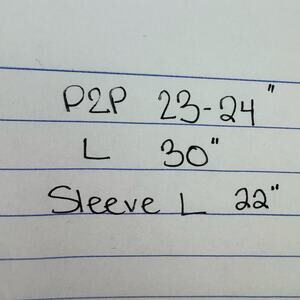 P2P 23-24"
L 30"
Sleeve L 22"